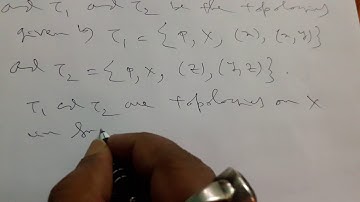 and τ₁ and τ₂ be the topologies
given by τ₁ = {φ, X, (x), (x, y)}
and τ₂ = {φ, X, (z), (y, z)}.
τ₁ and τ₂ are topologies on X